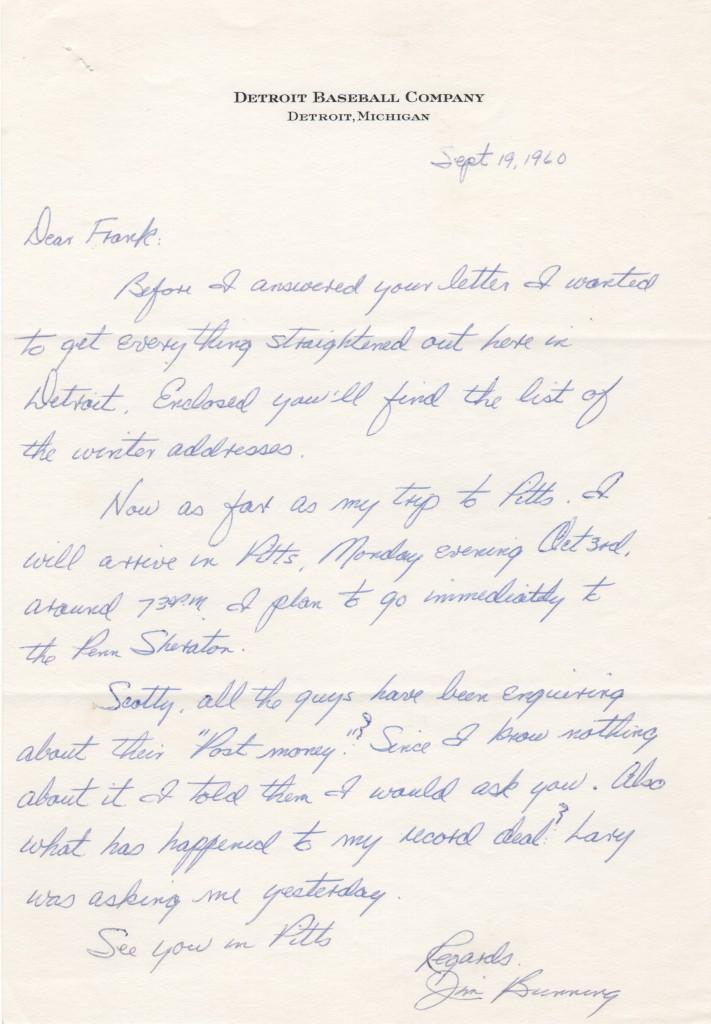 DETROIT BASEBALL COMPANY
DETROIT, MICHIGAN
Sept 19, 1960
Dear Frank:
Before I answered your letter I wanted
to get everything straightened out here in
Detroit. Enclosed you'll find the list of
the winter addresses.
Now as far as my trip to Pitts. I
will arrive in Pitts, Monday evening Oct 3rd,
around 730 P.M. I plan to go immediately to
the Penn Sheraton.
Scotty, all the guys have been enquiring
about their "Post money"? Since I know nothing
about it I told them I would ask you. Also
what has happened to my record deal? Lary
was asking me yesterday.
See you in Pitts
Regards.
Jim Bunning